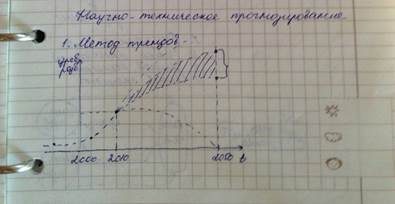 Научно-техническое прогнозирование.
1. Метод трендов.
2000
2010
2050
t